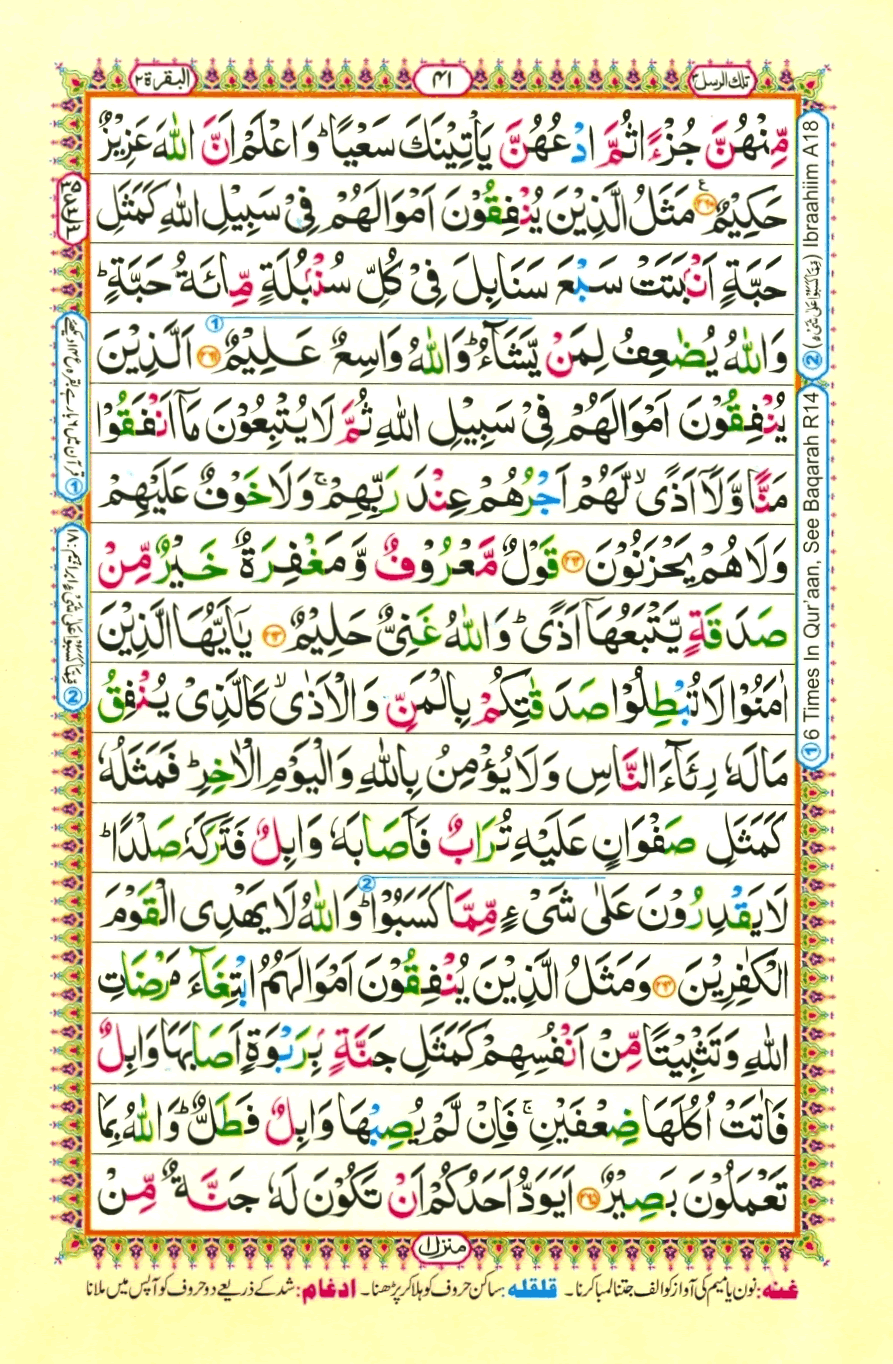 تلك الرسل ٣
٤١
البقرة ٢
مِّنْهُنَّ جُزْءًا ثُمَّ ادْعُهُنَّ يَاْتِيْنَكَ سَعْيًا ؕ وَاعْلَمْ اَنَّ اللّٰهَ عَزِيْزٌ
حَكِيْمٌ ۟ۧ ﴿۲۶۰﴾ مَثَلُ الَّذِيْنَ يُنْفِقُوْنَ اَمْوَالَهُمْ فِيْ سَبِيْلِ اللّٰهِ كَمَثَلِ
حَبَّةٍ اَنْۢبَتَتْ سَبْعَ سَنَابِلَ فِيْ كُلِّ سُنْۢبُلَةٍ مِّائَةُ حَبَّةٍ ؕ
وَاللّٰهُ يُضٰعِفُ لِمَنْ يَّشَآءُ ؕ وَاللّٰهُ وَاسِعٌ عَلِيْمٌ ﴿۲۶۱﴾ اَلَّذِيْنَ
يُنْفِقُوْنَ اَمْوَالَهُمْ فِيْ سَبِيْلِ اللّٰهِ ثُمَّ لَا يُتْبِعُوْنَ مَاۤ اَنْفَقُوْا
مَنًّا وَّلَاۤ اَذًى ۙ لَّهُمْ اَجْرُهُمْ عِنْدَ رَبِّهِمْ ۚ وَلَا خَوْفٌ عَلَيْهِمْ
وَلَا هُمْ يَحْزَنُوْنَ ﴿۲۶۲﴾ قَوْلٌ مَّعْرُوْفٌ وَّمَغْفِرَةٌ خَيْرٌ مِّنْ
صَدَقَةٍ يَّتْبَعُهَاۤ اَذًى ؕ وَاللّٰهُ غَنِيٌّ حَلِيْمٌ ﴿۲۶۳﴾ يٰۤاَيُّهَا الَّذِيْنَ
اٰمَنُوْا لَا تُبْطِلُوْا صَدَقٰتِكُمْ بِالْمَنِّ وَالْاَذٰى ۙ كَالَّذِيْ يُنْفِقُ
مَالَهٗ رِئَآءَ النَّاسِ وَلَا يُؤْمِنُ بِاللّٰهِ وَالْيَوْمِ الْاٰخِرِ ؕ فَمَثَلُهٗ
كَمَثَلِ صَفْوَانٍ عَلَيْهِ تُرَابٌ فَاَصَابَهٗ وَابِلٌ فَتَرَكَهٗ صَلْدًا ؕ
لَا يَقْدِرُوْنَ عَلٰى شَيْءٍ مِّمَّا كَسَبُوْا ؕ وَاللّٰهُ لَا يَهْدِي الْقَوْمَ
الْكٰفِرِيْنَ ﴿۲۶۴﴾ وَمَثَلُ الَّذِيْنَ يُنْفِقُوْنَ اَمْوَالَهُمُ ابْتِغَآءَ مَرْضَاتِ
اللّٰهِ وَتَثْبِيْتًا مِّنْ اَنْفُسِهِمْ كَمَثَلِ جَنَّةٍۭ بِرَبْوَةٍ اَصَابَهَا وَابِلٌ
فَاٰتَتْ اُكُلَهَا ضِعْفَيْنِ ۚ فَاِنْ لَّمْ يُصِبْهَا وَابِلٌ فَطَلٌّ ؕ وَاللّٰهُ بِمَا
تَعْمَلُوْنَ بَصِيْرٌ ﴿۲۶۵﴾ اَيَوَدُّ اَحَدُكُمْ اَنْ تَكُوْنَ لَهٗ جَنَّةٌ مِّنْ
① 6 Times In Qur'aan, See Baqarah R14
② (مِمَّا كَسَبُوْا عَلٰى شَيْءٍ) Ibraahiim A18
منزل ۱
غنه: نون یا میم کی آواز کو الف جتنا لمبا کرنا۔ قلقله: ساکن حروف کو ہلا کر پڑھنا۔ ادغام: شد کے ذریعے دو حروف کو آپس میں ملانا